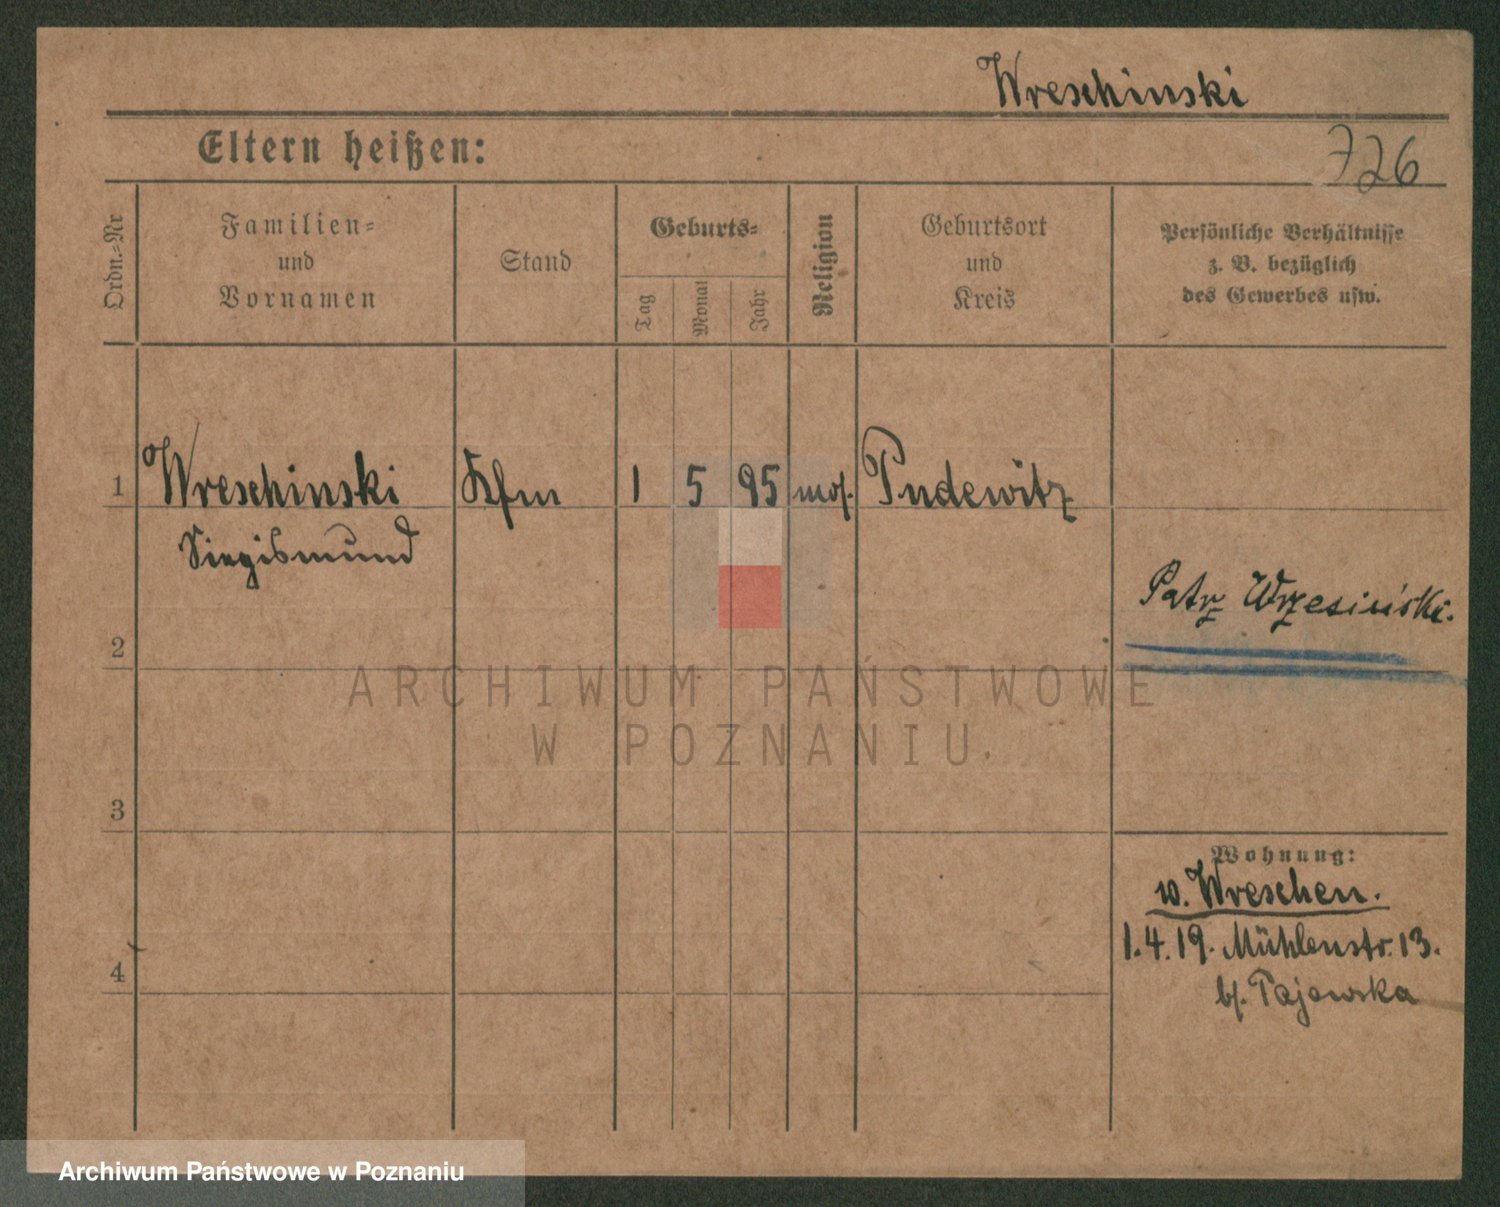 Wreschinski
Eltern heißen:
726
Ordn.-Nr
Familien-
und
Vornamen
Stand
Geburts-
Tag
Monat
Jahr
Religion
Geburtsort
und
Kreis
Persönliche Verhältnisse
z. B. bezüglich
des Gewerbes usw.
1 Wreschinski Kfm 1 5 95 mos. Pudewitz
Siegismund
Patrz Wrzesiński.
2
ARCHIWUM PAŃSTWOWE
W POZNANIU
3
Wohnung:
w. Wreschen.
1.4.19. Mühlenstr. 13.
4
b/. Pajewska
Archiwum Państwowe w Poznaniu